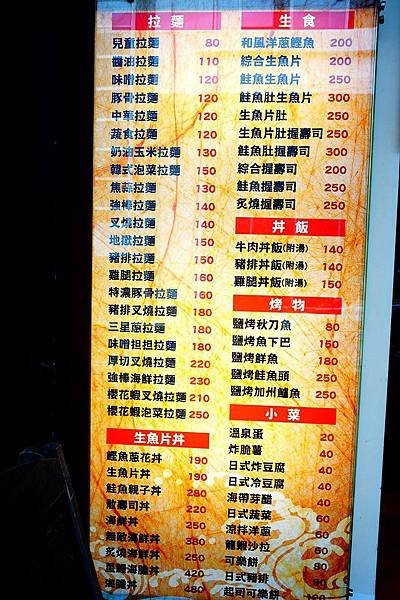 拉麵
兒童拉麵 80
醬油拉麵 110
味噌拉麵 120
豚骨拉麵 120
中華拉麵 120
蔬食拉麵 120
奶油玉米拉麵 130
韓式泡菜拉麵 150
焦蒜拉麵 130
強棒拉麵 140
叉燒拉麵 140
地獄拉麵 150
豬排拉麵 150
雞腿拉麵 160
特濃豚骨拉麵 160
豬排叉燒拉麵 180
三星蔥拉麵 180
味噌担担拉麵 180
厚切叉燒拉麵 220
強棒海鮮拉麵 230
櫻花蝦叉燒拉麵 210
櫻花蝦泡菜拉麵 250
生魚片丼
鰹魚蔥花丼 190
生魚片丼 190
鮭魚親子丼 280
散壽司丼 220
海鮮丼 250
無敵海鮮丼 380
炙燒海鮮丼 250
海膽丼 480
生食
和風洋蔥鰹魚 200
綜合生魚片 200
鮭魚生魚片 250
鮭魚肚生魚片 300
生魚片肚 250
生魚片肚握壽司 250
鮭魚肚握壽司 300
綜合握壽司 200
鮭魚握壽司 250
炙燒握壽司 250
丼飯
牛肉丼飯(附湯) 140
豬排丼飯(附湯) 140
雞腿丼飯(附湯) 150
烤物
鹽烤秋刀魚 80
鹽烤魚下巴 150
鹽烤鮮魚 180
鹽烤鮭魚頭 250
鹽烤加州鱸魚 250
小菜
溫泉蛋 20
炸脆薯 40
日式炸豆腐 40
日式冷豆腐 40
海帶芽醋 40
日式蔬菜 60
涼拌洋蔥 60
龍蝦沙拉 60
可樂餅 80
日式豬排 90
起司可樂餅 120